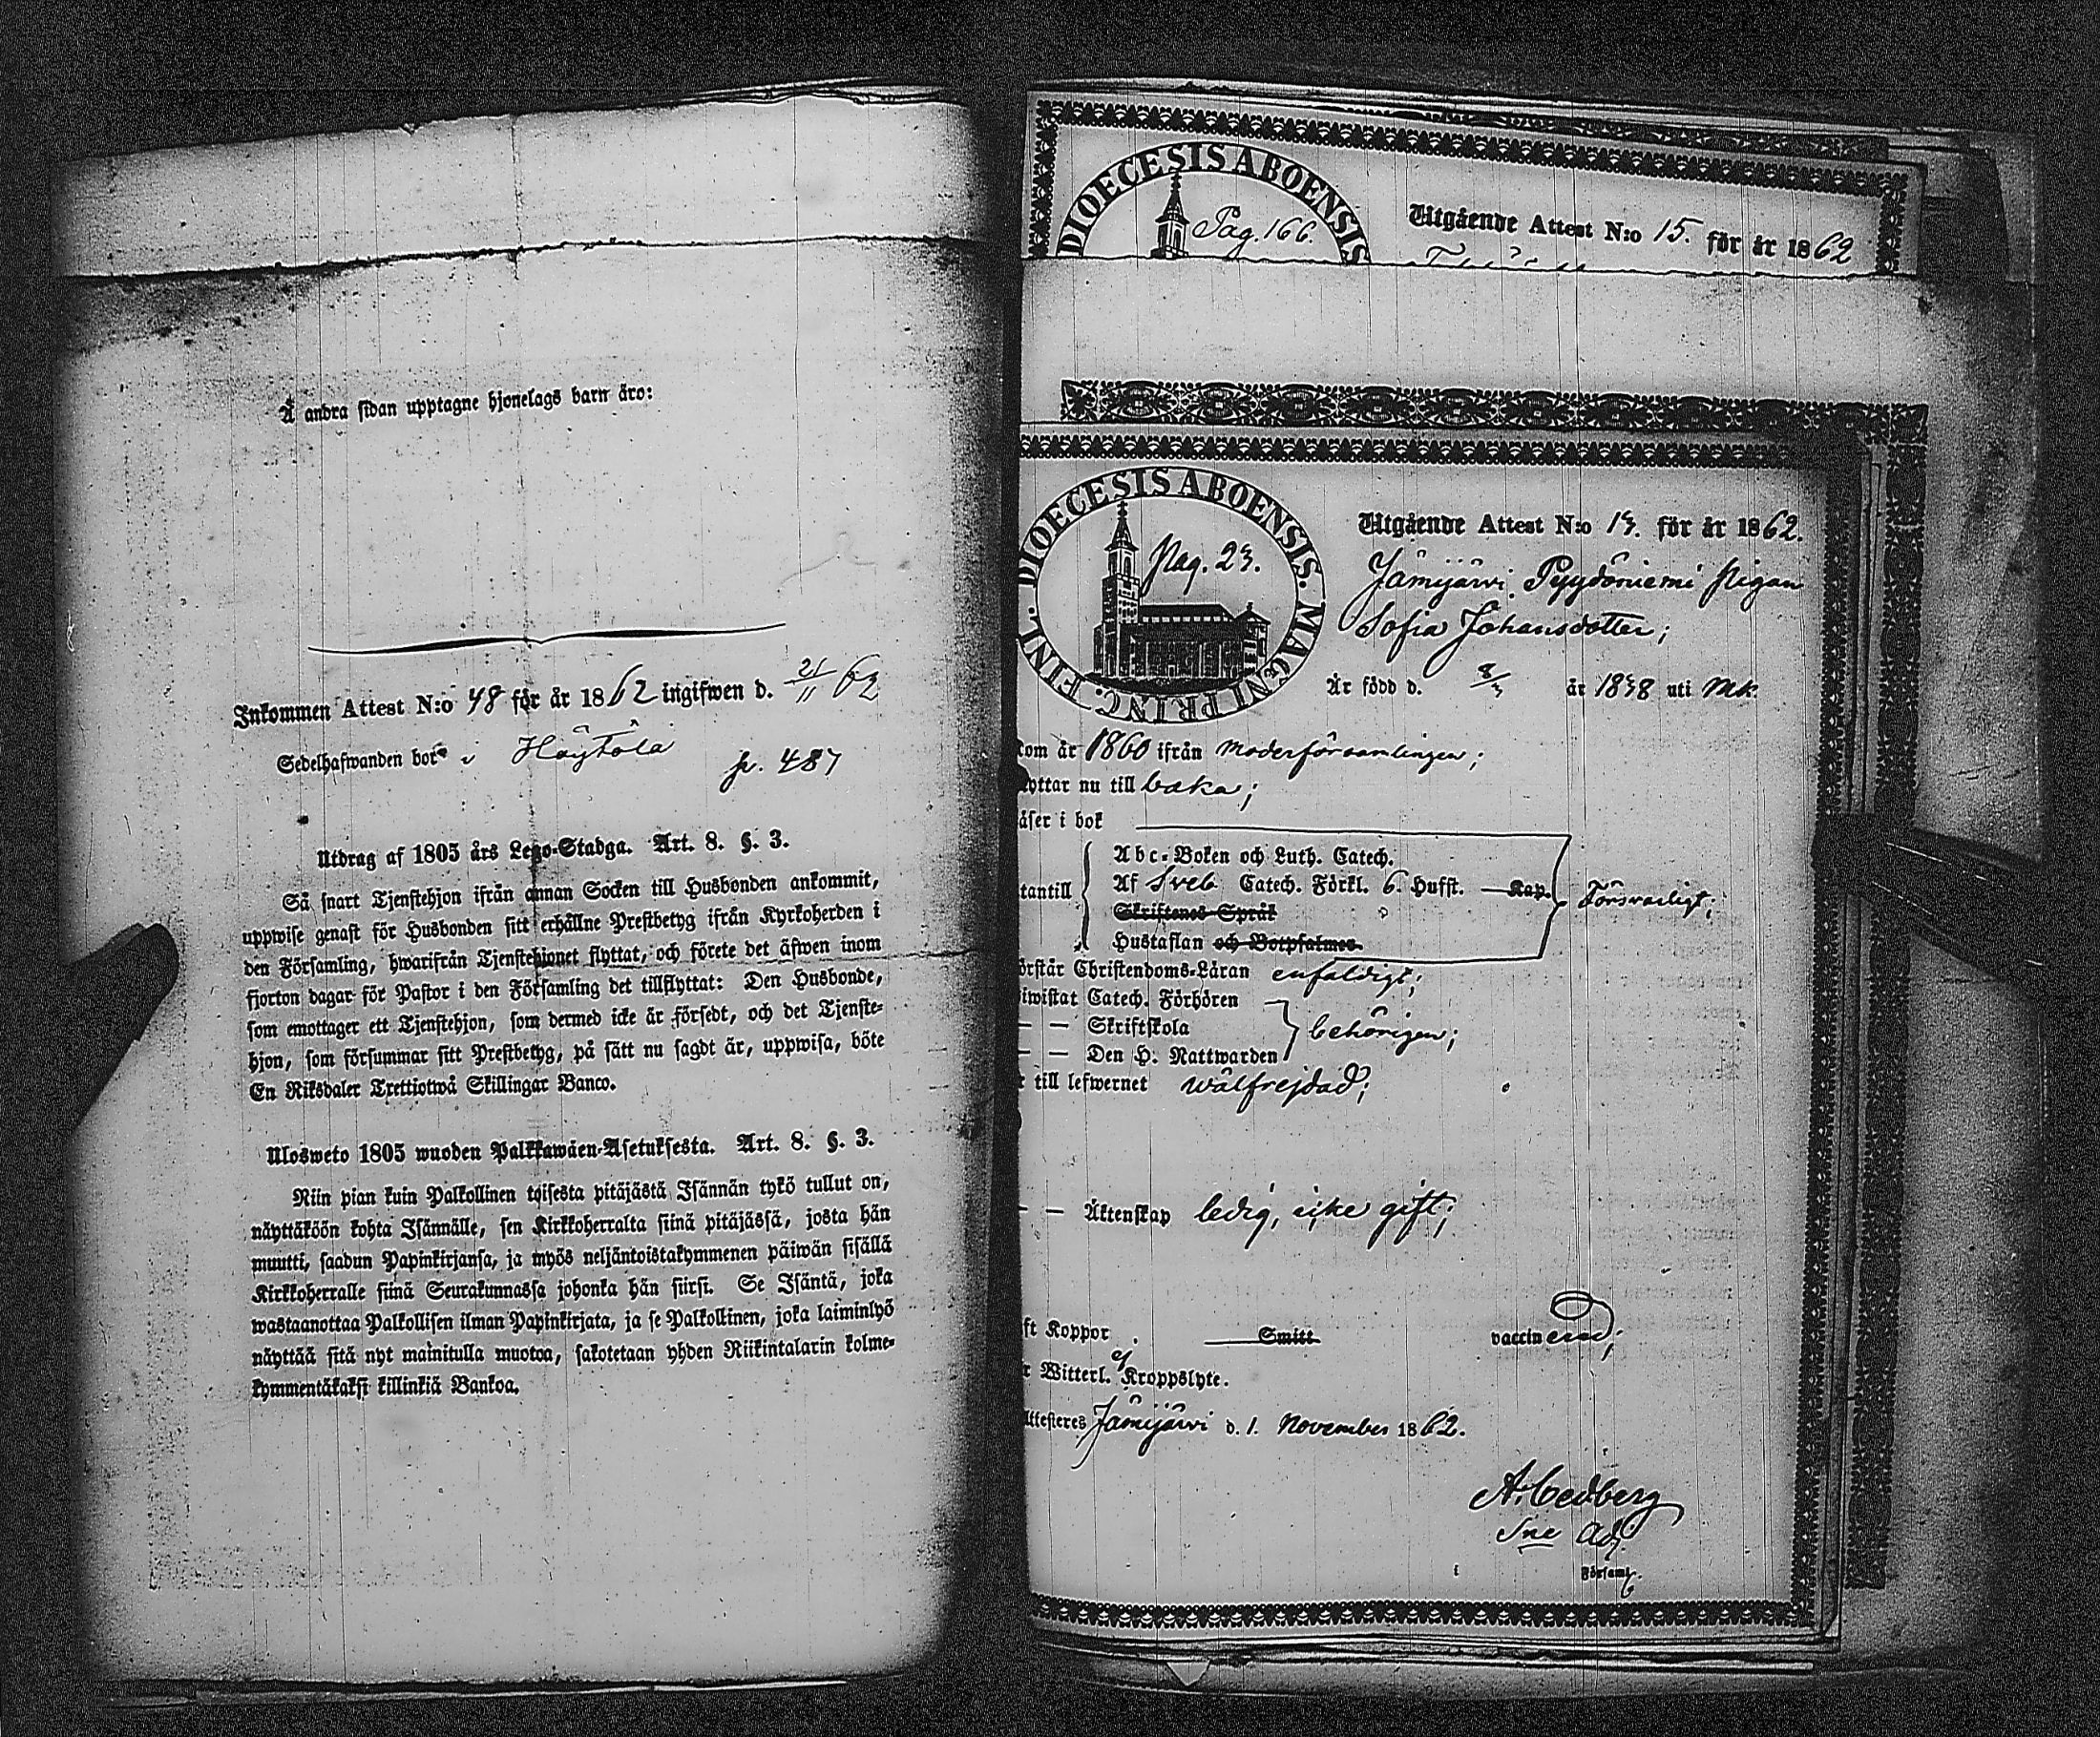 Å andra sidan upptagne hjonelags barn äro:
Inkommen Attest N:o 48 för år 1862 ingifwen d. 21/11 62
Sedelhafwanden bor i Höytölä
p. 487
Utdrag af 1805 års Lego-Stadga. Art. 8. §. 3.
Så snart Tjenstehjon ifrån annan Socken till Husbonden ankommit,
uppwise genast för Husbonden sitt erhållne Prestbetyg ifrån Kyrkoherden i
den Församling, hwarifrån Tjenstehjonet flyttat, och förete det äfwen inom
fjorton dagar för Pastor i den Församling det tillflyttat: Den Husbonde,
som emottager ett Tjenstehjon, som dermed icke är försedt, och det Tjenste-
hjon, som försummar sitt Prestbetyg, på sätt nu sagdt är, uppwisa, böte
En Riksdaler Trettiotwå Skillingar Banco.
Ulosweto 1805 wuoden Palkkawäen-Asetuksesta. Art. 8. §. 3.
Niin pian kuin Palkollinen toisesta pitäjästä Isännän tykö tullut on,
näyttäköön kohta Isännälle, sen Kirkkoherralta siinä pitäjässä, josta hän
muutti, saadun Papinkirjansa, ja myös neljäntoistakymmenen päiwän sisällä
Kirkkoherralle siinä Seurakunnassa johonka hän siirsi. Se Isäntä, joka
wastaanottaa Palkollisen ilman Papinkirjata, ja se Palkollinen, joka laiminlyö
näyttää sitä nyt mainitulla muotoa, sakotetaan yhden Riikintalarin kolme-
kymmentäkaksi killinkiä Bankoa.
DIOECESIS ABOENSIS
Pag. 166.
Utgående Attest N:o 15. för år 1862
FINL. DIOECESIS ABOENSIS. MAGNI PRINC.
Pag. 23.
Utgående Attest N:o 13. för år 1862.
Jämijärvi Pyydöniemi Pigan
Sofia Johansdotter;
Är född d. 8/3 år 1838 uti Mk.
kom år 1860 ifrån moderförsamlingen;
yttar nu till baka;
äser i bok
Abc-Boken och Luth. Catech.
tantill Af Sveb. Catech. Förkl. 6. Hufst. Kap. Försvarligt;
Skriftenes Språk
Hustaflan och Botpsalmer
örstår Christendoms-Läran enfaldigt;
iwistat Catech. Förhören
— — Skriftskola behörigen;
— — Den H. Nattwarden
r till lefwernet wälfrejdad;
— — Äktenskap ledig, icke gift;
ft Koppor Smitt vaccinerad;
r Witterl. ej Kroppslyte.
Attesteres Jämijärvi d. 1. November 1862.
A. Cedberg
Sne Adj.
Församl.